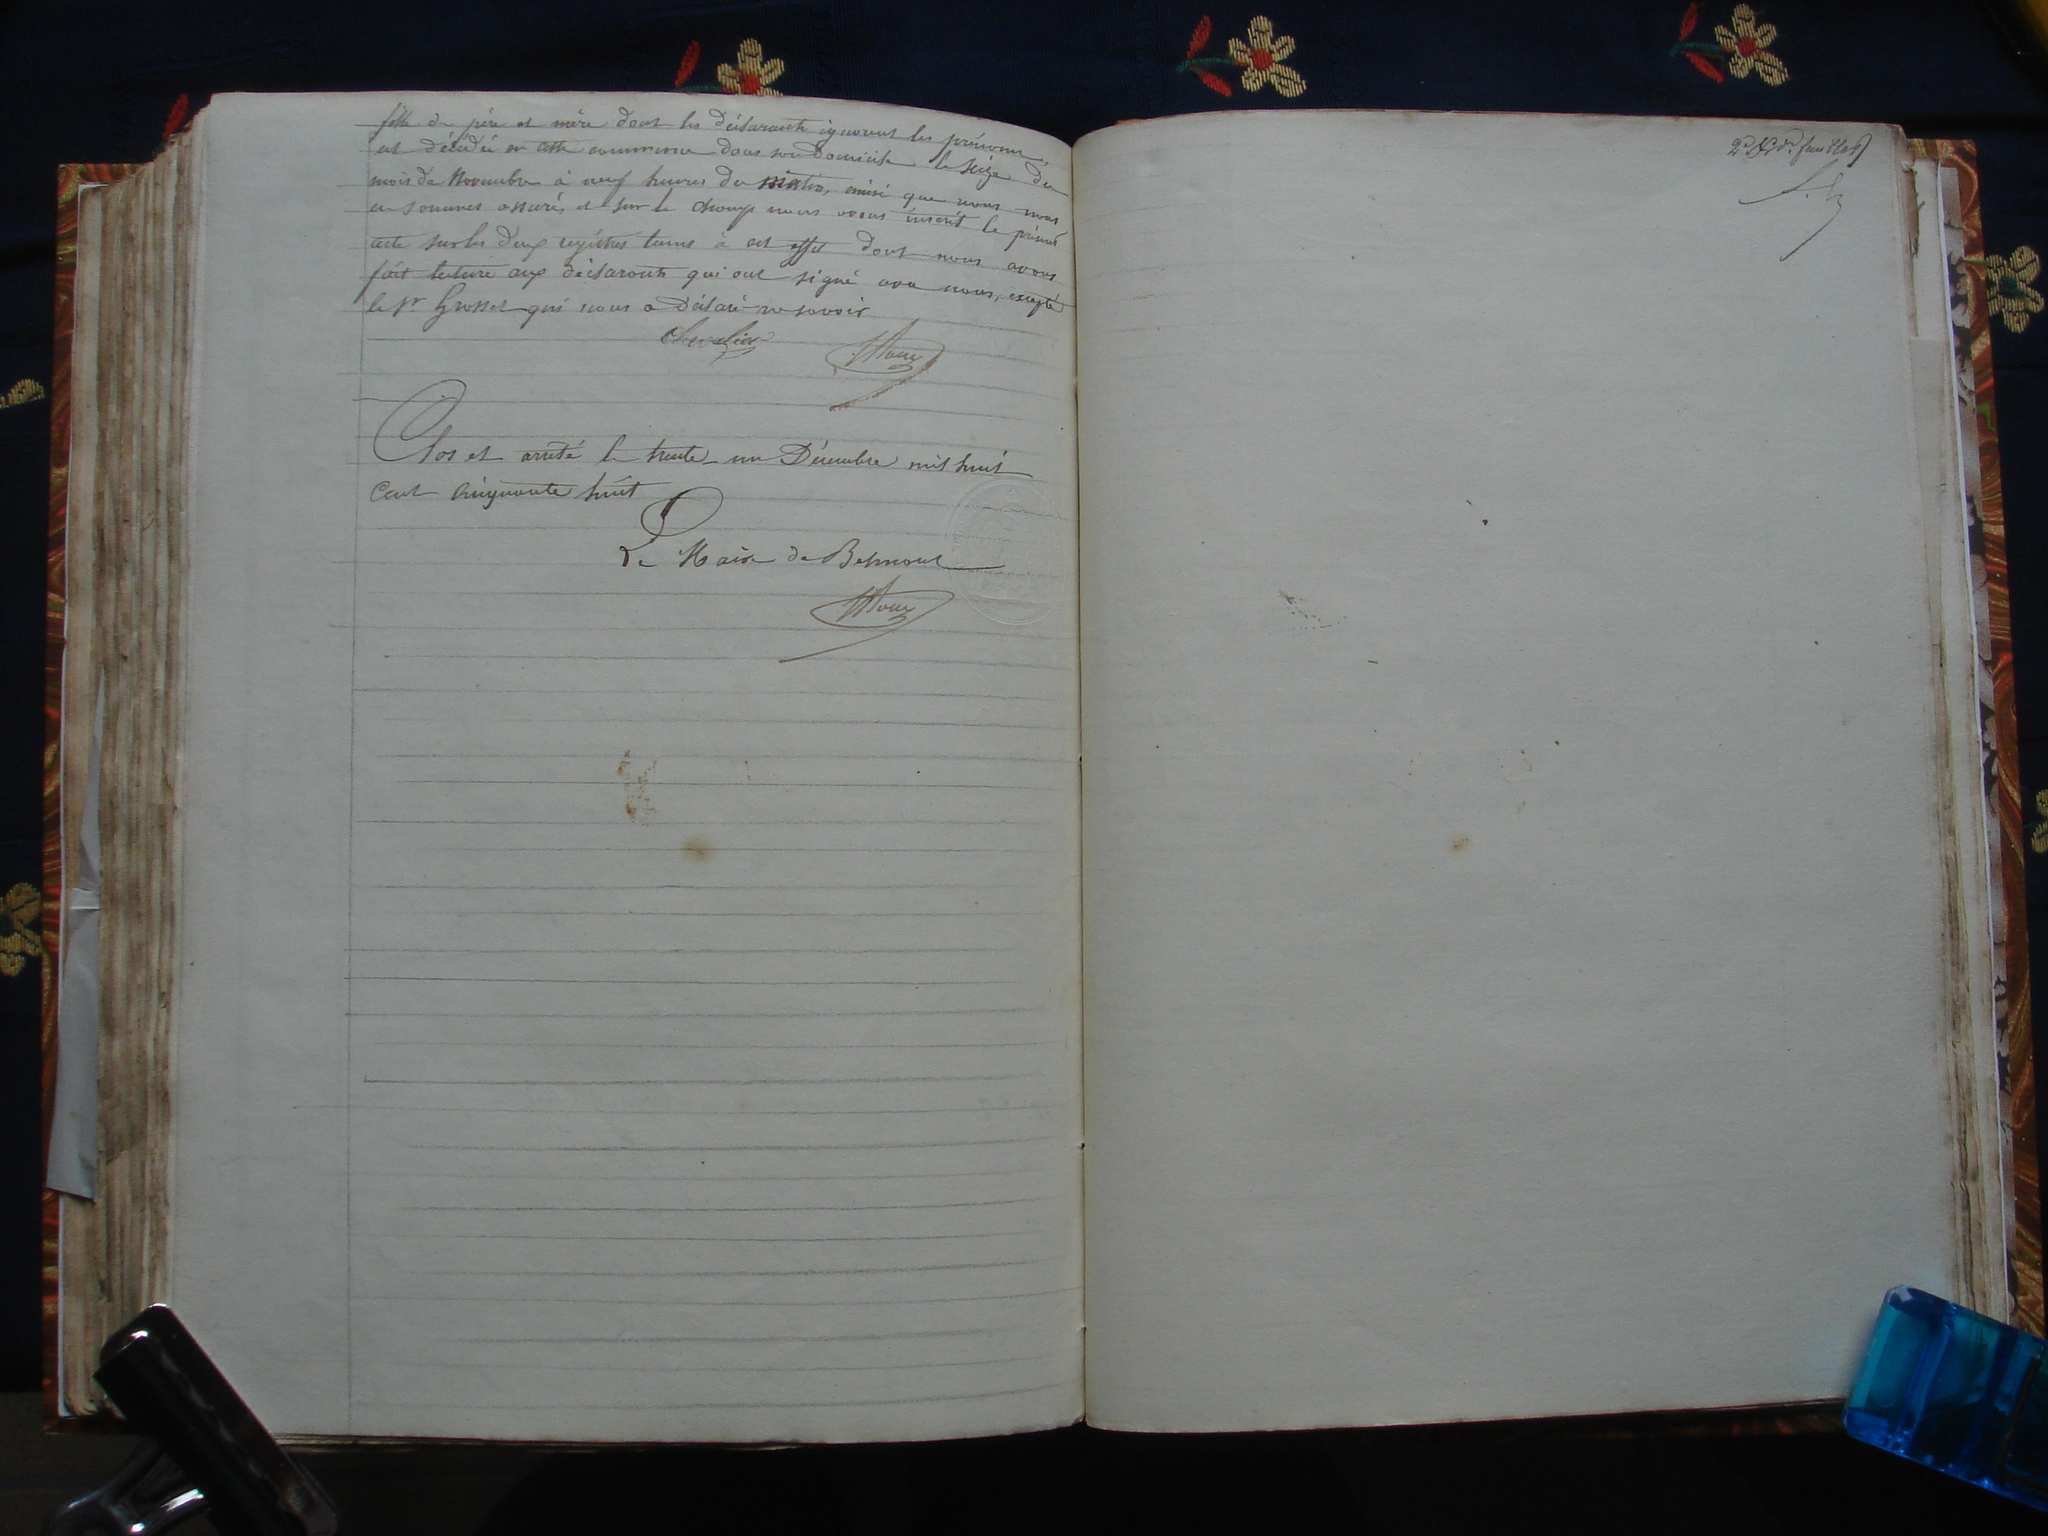 fille de père et mère dont les déclarants ignorent les prénoms,
est décédé en cette commune dans son domicile le seize du
mois de Novembre à neuf heures du matin, ainsi que nous nous
en sommes assuré, et sur le champ nous avons inscrit le présent
acte sur les deux registres tenus à cet effet dont nous avons
fait lecture aux déclarants qui ont signé avec nous, excepté
le Sr Grosset qui nous a déclaré ne savoir
Chevalier
Clos et arrêté le trente-un Décembre mil huit
Cent cinquante huit
Le Maire de Belmont
feuillet